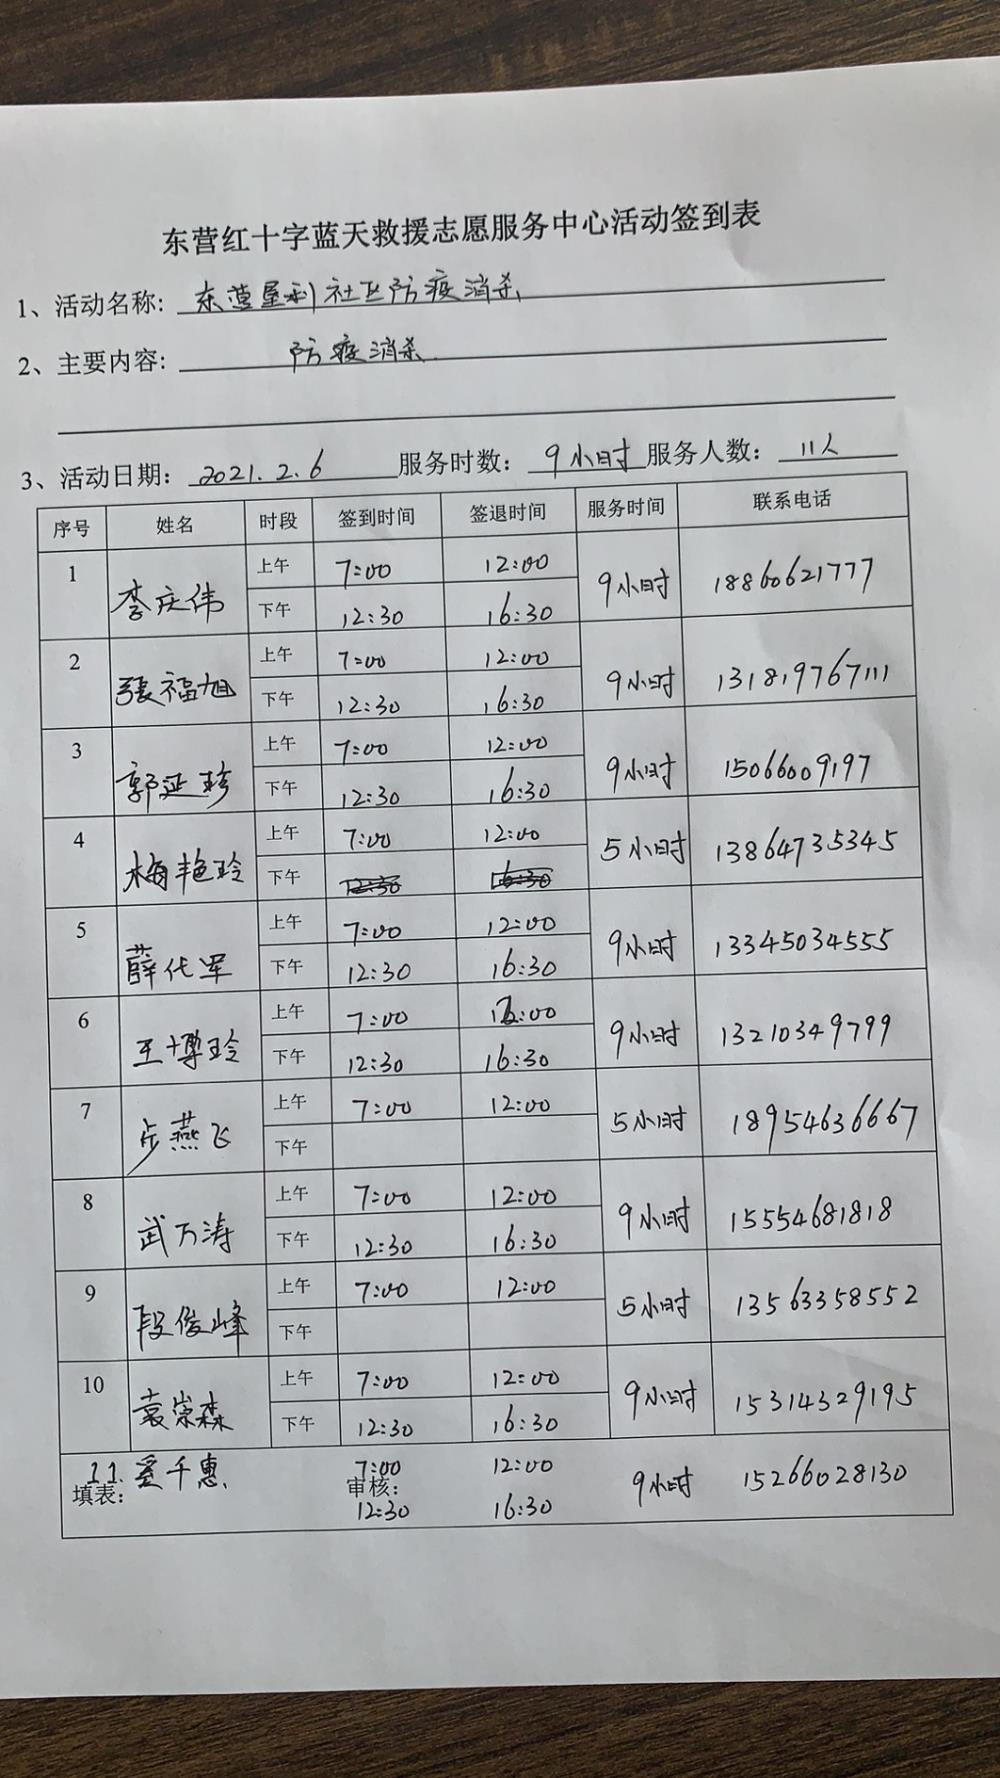 东营红十字蓝天救援志愿服务中心活动签到表
1、活动名称: 东营垦利社区防疫消杀
2、主要内容: 防疫消杀
3、活动日期: 2021.2.6 服务时数: 9小时 服务人数: 11人
序号 姓名 时段 签到时间 签退时间 服务时间 联系电话
1 李庆伟 上午 7:00 12:00 9小时 18860621777
下午 12:30 16:30
2 张福旭 上午 7:00 12:00 9小时 131819767111
下午 12:30 16:30
3 郭延珍 上午 7:00 12:00 9小时 15066009197
下午 12:30 16:30
4 梅艳玲 上午 7:00 12:00 5小时 13864735345
下午 12:30 16:30
5 薛化军 上午 7:00 12:00 9小时 13345034555
下午 12:30 16:30
6 王博玲 上午 7:00 12:00 9小时 13210349799
下午 12:30 16:30
7 步燕飞 上午 7:00 12:00 5小时 18954636667
下午
8 武万涛 上午 7:00 12:00 9小时 15554681818
下午 12:30 16:30
9 段俊峰 上午 7:00 12:00 5小时 13563358552
下午
10 袁崇森 上午 7:00 12:00 9小时 15314329195
下午 12:30 16:30
11. 千惠 7:00 12:00 9小时 15266028130
填表: 审核:
12:30 16:30